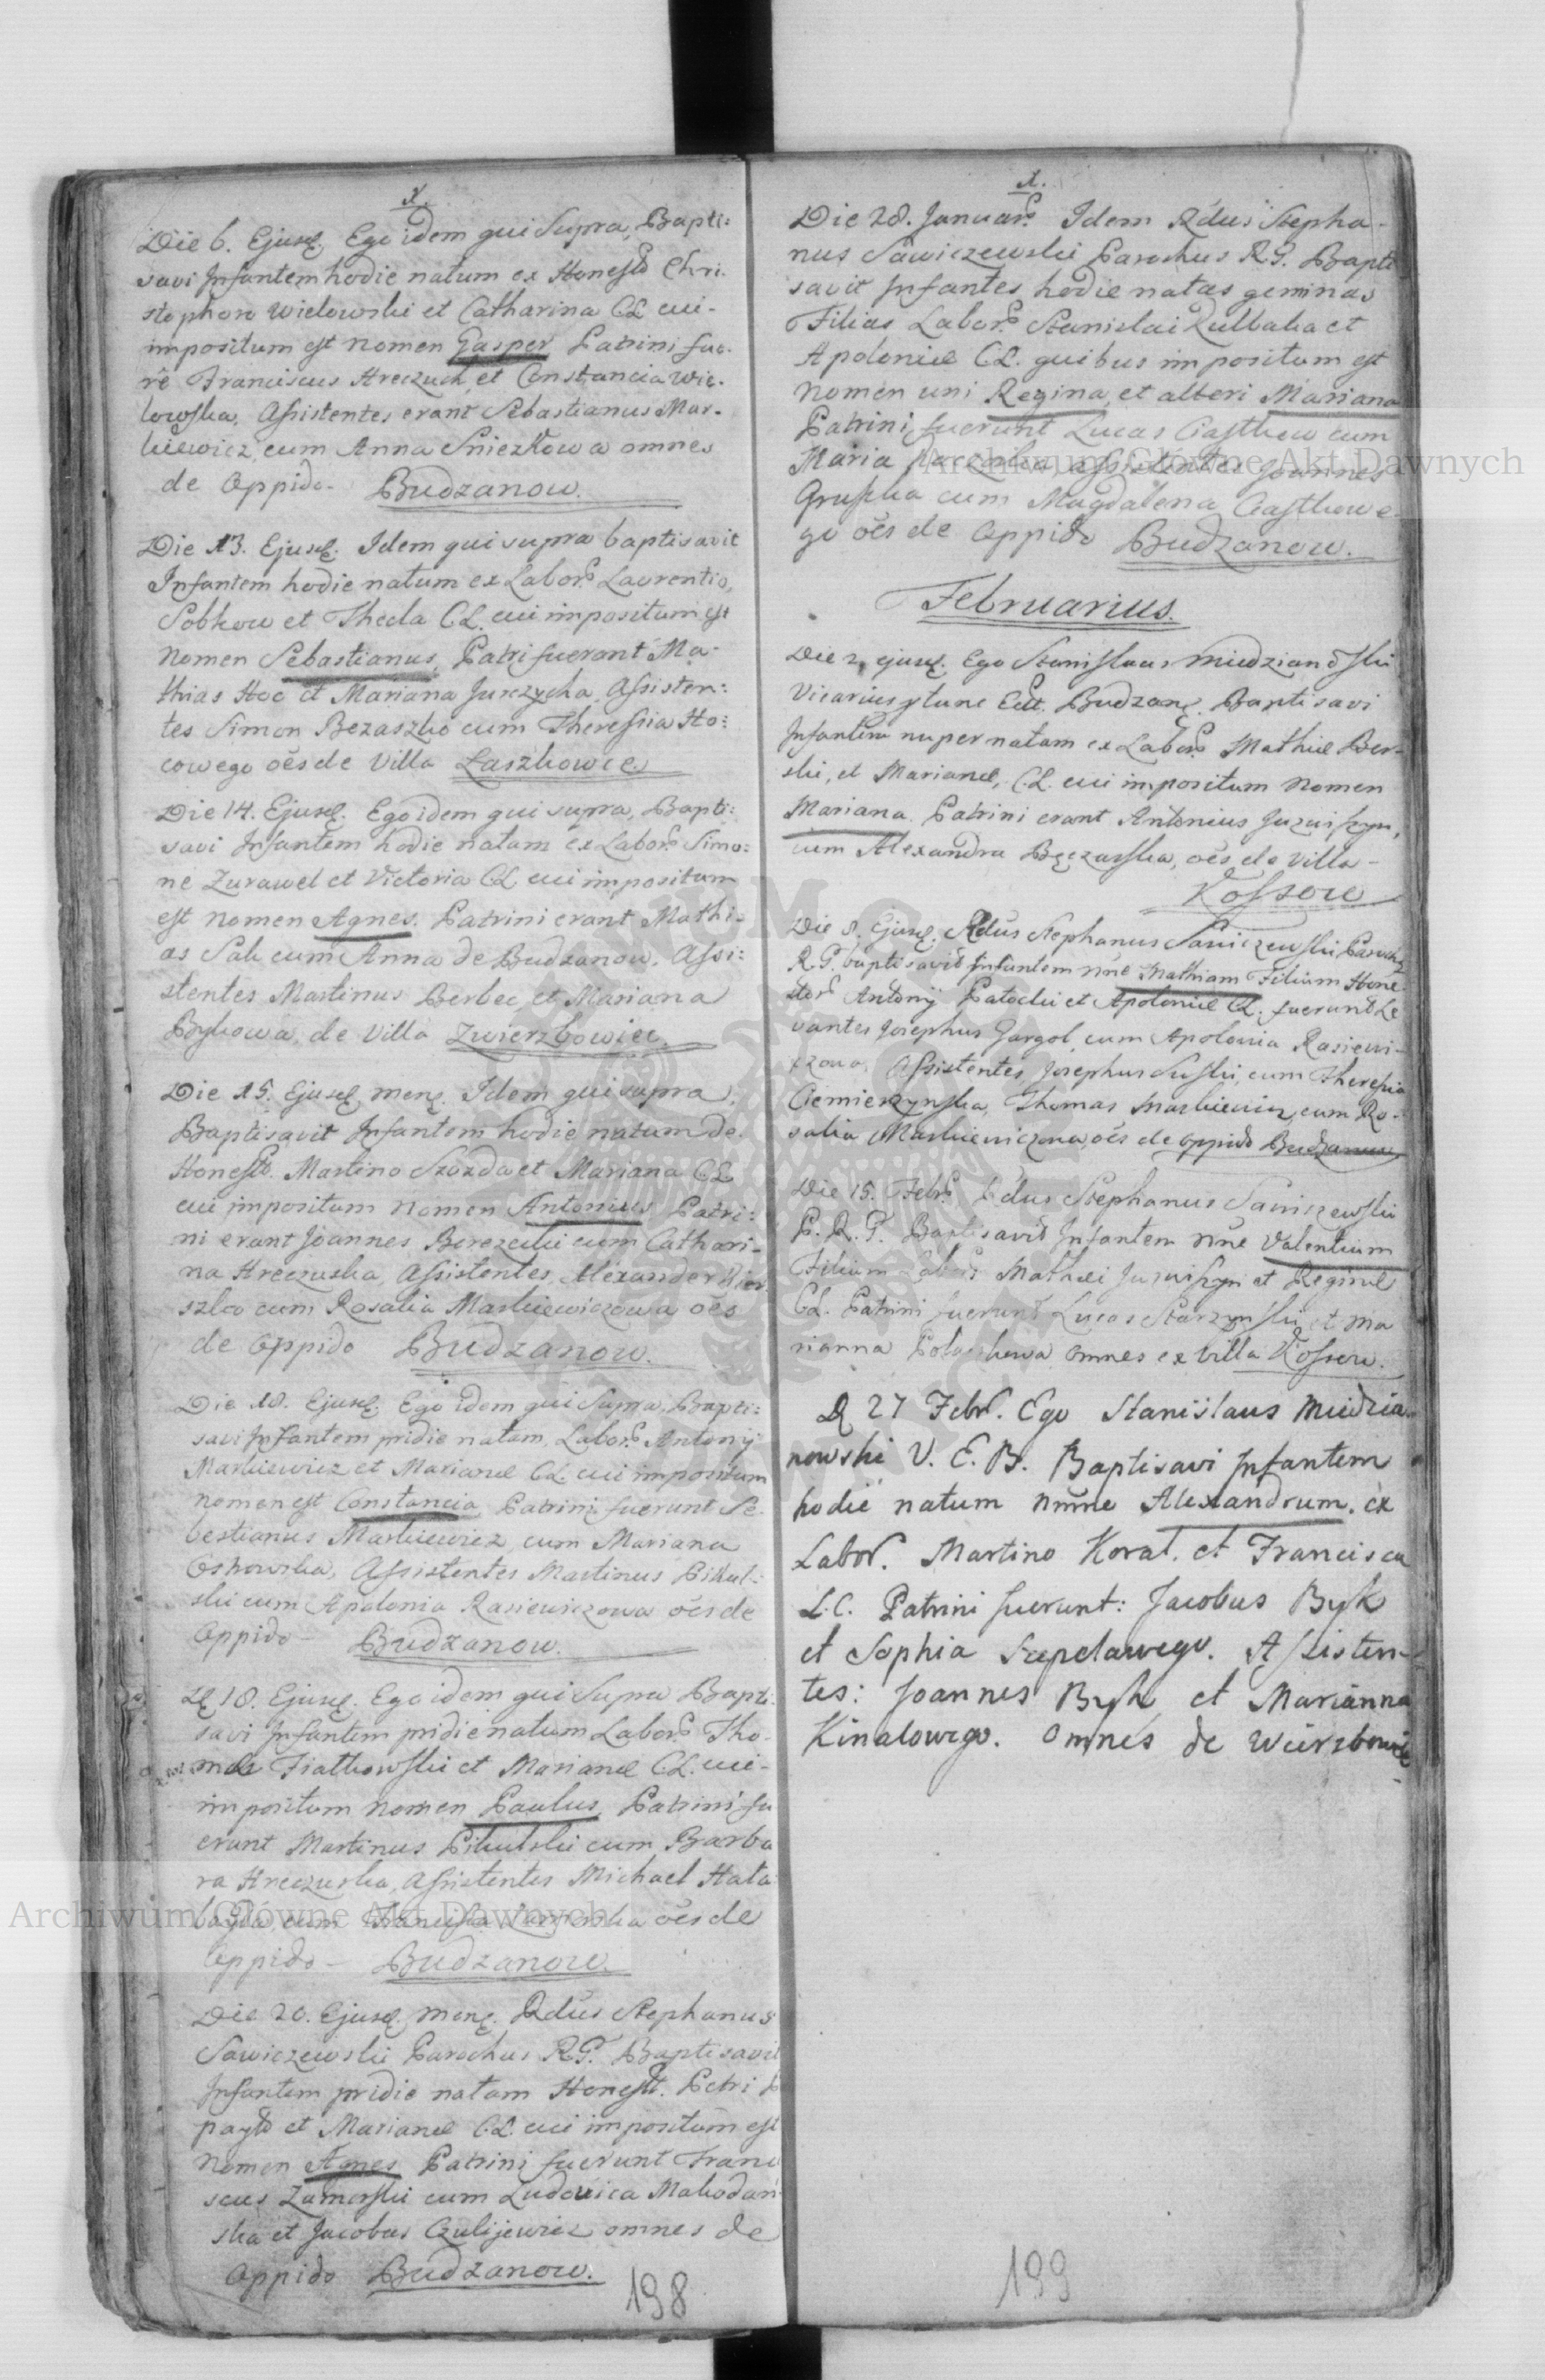 x.
Die 6. Ejusd. Ego idem qui Supra, Bapti:
savi Infantem hodie natum ex Honesto Chri.
stophoro Wielowski et Catharina CL cui-
impositum est Nomen Gasper Patrini fue.
re Franciscus Hreczuch, et Constancia Wie.
lowska, Assistentes erant Sebastianus Mar-
kiewicz cum Anna Sniezkowa omnes
de Oppido- Budzanow.
Die 13. Ejusd. Idem qui supra baptisavit
Infantem hodie natum ex Labor. Laurentio,
Sobkow et Thecla CL. cui impositum est
Nomen Sebastianus, Patri fuerant Ma-
thias Hoc et Mariana Jurczycha, Assisten:
tes Simon Bezaszko cum Theressia Ho:
cowego oes de Villa Laszkowce
Die 14. Ejusd. Ego idem qui supra, Bapti:
savi Infantem hodie natam ex Labor. Simo:
ne Zurawel et Victoria CL cui impositum
est Nomen Agnes. Patrini erant Mathi-
as Sak cum Anna de Budzanow. Assi:
stentes Martinus Berbec et Mariana
Bykowa de Villa Zwierzbowiec.
Die 15. Ejusd. Mens. Idem qui supra
Baptisavit Infantem hodie natum de
Honesto. Martino Szozda et Mariana CL
cui impositum Nomen Antonius Patri:
ni erant Joannes Berezecki cum Cathari-
na Hreczuska, Assistentes, Alexander
szko cum Rosalia Markiewiczowa oes
de Oppido Budzanow.
Die 18. Ejusd. Ego idem qui Supra, Bapti:
savi Infantem pridie natam, Labor. Antonij
Markiewicz et Marianae CL cui impositum
nomen est Constancia Patrini fuerunt Se.
bestianus Markiewicz cum Mariana
Assistentes Martinus Pikul-
ski cum Apolonia Rasiewiczowa oes de
Oppido- Budzanow.
D 18. Ejusd. Ego idem qui Supra Bapti.
savi Infantem pridie natum Labor. Tho-
mae Fiatkowski et Marianae CL. cui-
impositum nomen Paulus, Patrini fu
erunt Martinus Pikulski cum Barba
ra Hreczuska, Assistentes Michael Hala
bayda cum oes de
Oppido- Budzanow.
Die 20. Ejusd. Mens. Rdus Stephanus
Sawiczewski Parochus RG. Baptisavit
Infantem pridie natam Honest. Petri
et Marianae CL. cui impositum est
Nomen Agnes Patrini fuerunt Franci
scus Zamorski cum Ludovica Makodan
ska et Jacobus Czulijewicz omnes de
Oppido Budzanow.
198
x.
Die 28. Januar. Idem Rdus Stepha-
nus Sawiczewski Parochus RG. Bapti
savit Infantes hodie natas geminas
Filias Labor. Stanislai Kulbaka et
Apoloniae CL. quibus impositum est
Nomen uni Regina, et alteri Mariana
Patrini fuerunt Lucas Gasthow cum
Maria assistentes Joannes
Gruszka cum Magdalena Gasthowe-
go oes de Oppido Budzanow.
Februarius.
Die 2. ejusd. Ego Stanislaus Miedzianowski
Vicarius Eccl. Budzan. Baptisavi
Infantem nuper natam ex Labor. Mathiae Ber-
ski, et Marianae, CL. cui impositum Nomen
Mariana. Patrini erant Antonius Juzwiszyn,
cum Alexandra oes de Villa-
Kossow
Die 8. Ejusd. Rdus Stephanus Sawiczewski Parochus
R.G. baptisavit Infantem nne Mathiam Filium Hone-
stor. Antonij Patocki et Apoloniae CL. fuerunt Le
vantes Josephus Gargol, cum Apolonia Rasiewi-
czowa, Assistentes Josephus Suski, cum Theresia
Ciemierzynska, Thomas Markiewicz, cum Ro-
salia Markiewiczowa, oes de Oppido Budzanow
Die 15. Febr. Rdus Stephanus Sawiczewski
P. R. G. Baptisavit Infantem nne Valentium
Filium Labor. Mathaei Juzwiszyn et Reginae
CL. Patrini fuerunt Lucas Starzynski, et Ma
rianna omnes ex Villa Kossow.
D 27 Febr. Ego Stanislaus Miedzia-
nowski V. E. B. Baptisavi Infantem
hodie natum nmne Alexandrum. ex
Labor. Martino Koral. et Francisca
L.C. Patrini fuerunt: Jacobus Byk
et Sophia Szepelawego. Assisten-
tes: Joannes Byk et Marianna
Kinalowego. Omnes de Wierzbowiec
199
Archiwum Główne Akt Dawnych
Archiwum Główne Akt Dawnych